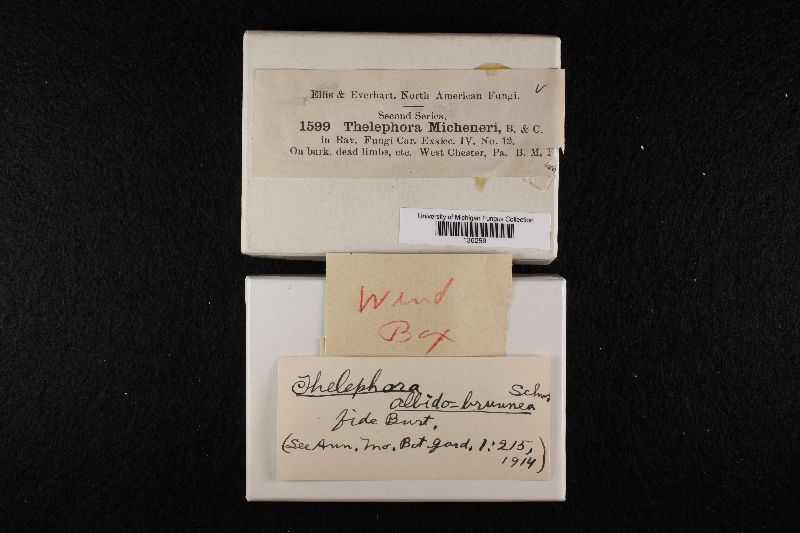 Ellis & Everhart. North American Fungi.
Second Series.
1599 Thelephora Micheneri, B. & C.
in Rav. Fungi Car. Exsicc. IV. No. 12.
On bark, dead limbs, etc. West Chester, Pa. B. M.
University of Michigan Fungus Collection
136259
Wind
Box
Thelephora
albido-brunnea Schw.
fide Burt.
(See Ann. Mo. Bot Gard. 1:215,
1914)